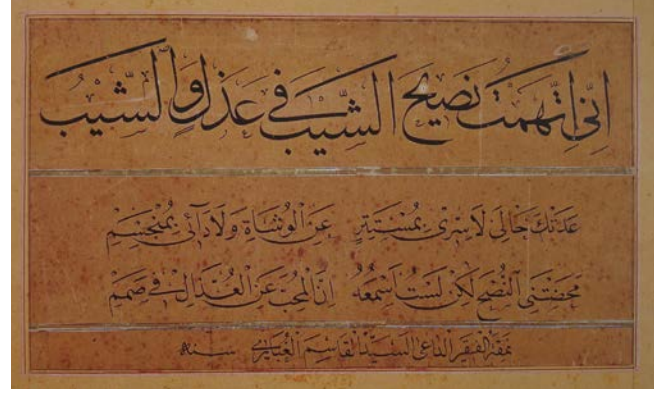 اِنّى اتَّهَمْتُ نَصيحَ الشَّيْبِ فى عَذَلٍ وَالشَّيْبُ
عَدَتْكَ حَالِىَ لَا سِرّى بِمُسْتَتِرٍ عَنِ الْوُشَاةِ وَلَا دَآئى بِمُنْحَسِمِ
مَحَضْتَنِى النُّصْحَ لٰكِنْ لَسْتُ اَسْمَعُهُ اِنَّ الْمُحِبَّ عَنِ الْعُذَّالِ فى صَمَمِ
نمقه الفقير الداعى السيد القاسم الغبارى سنه